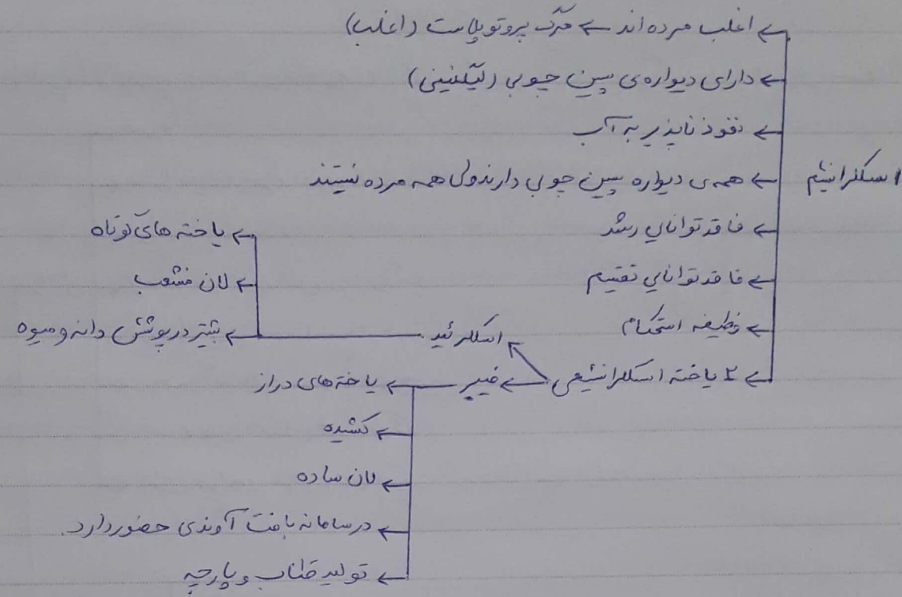 اسکلرانشیم
← اغلب مرده اند ← مرگ پروتوپلاست (اغلب)
← دارای دیواره‌ی پسین چوبی (لیگنینی)
← نفوذ ناپذیر به آب
← همه‌ی دیواره پسین چوبی دارند ولی همه مرده نیستند
← فاقد توانایی رشد
← فاقد توانایی تقسیم
← وظیفه استحکام
← ۲ یاخته اسکلرانشیمی
← اسکلرئید
← یاخته های کوتاه
← لان منشعب
← بیشتر در پوشش دانه و میوه
← فیبر
← یاخته های دراز
← کشیده
← لان ساده
← در سامانه بافت آوندی حضور دارد.
← تولید طناب و پارچه